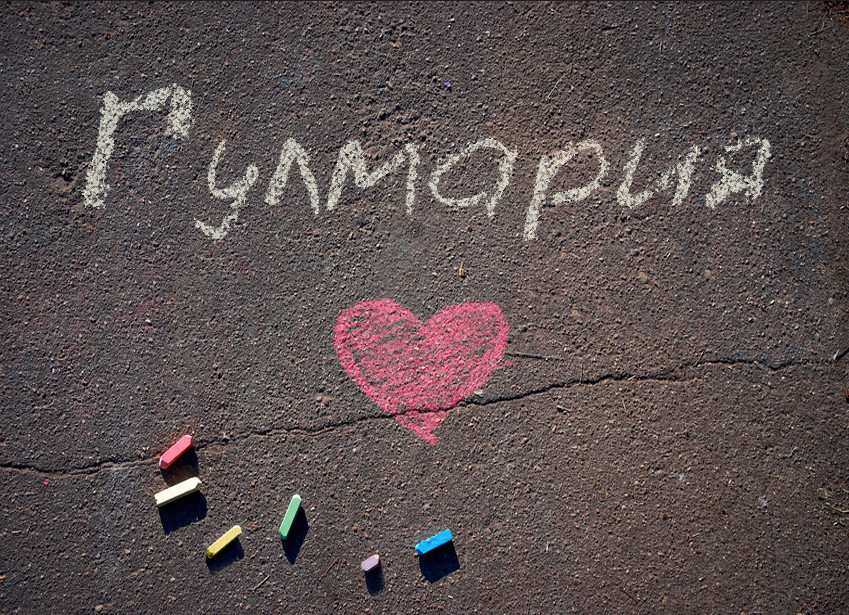 Гулмария